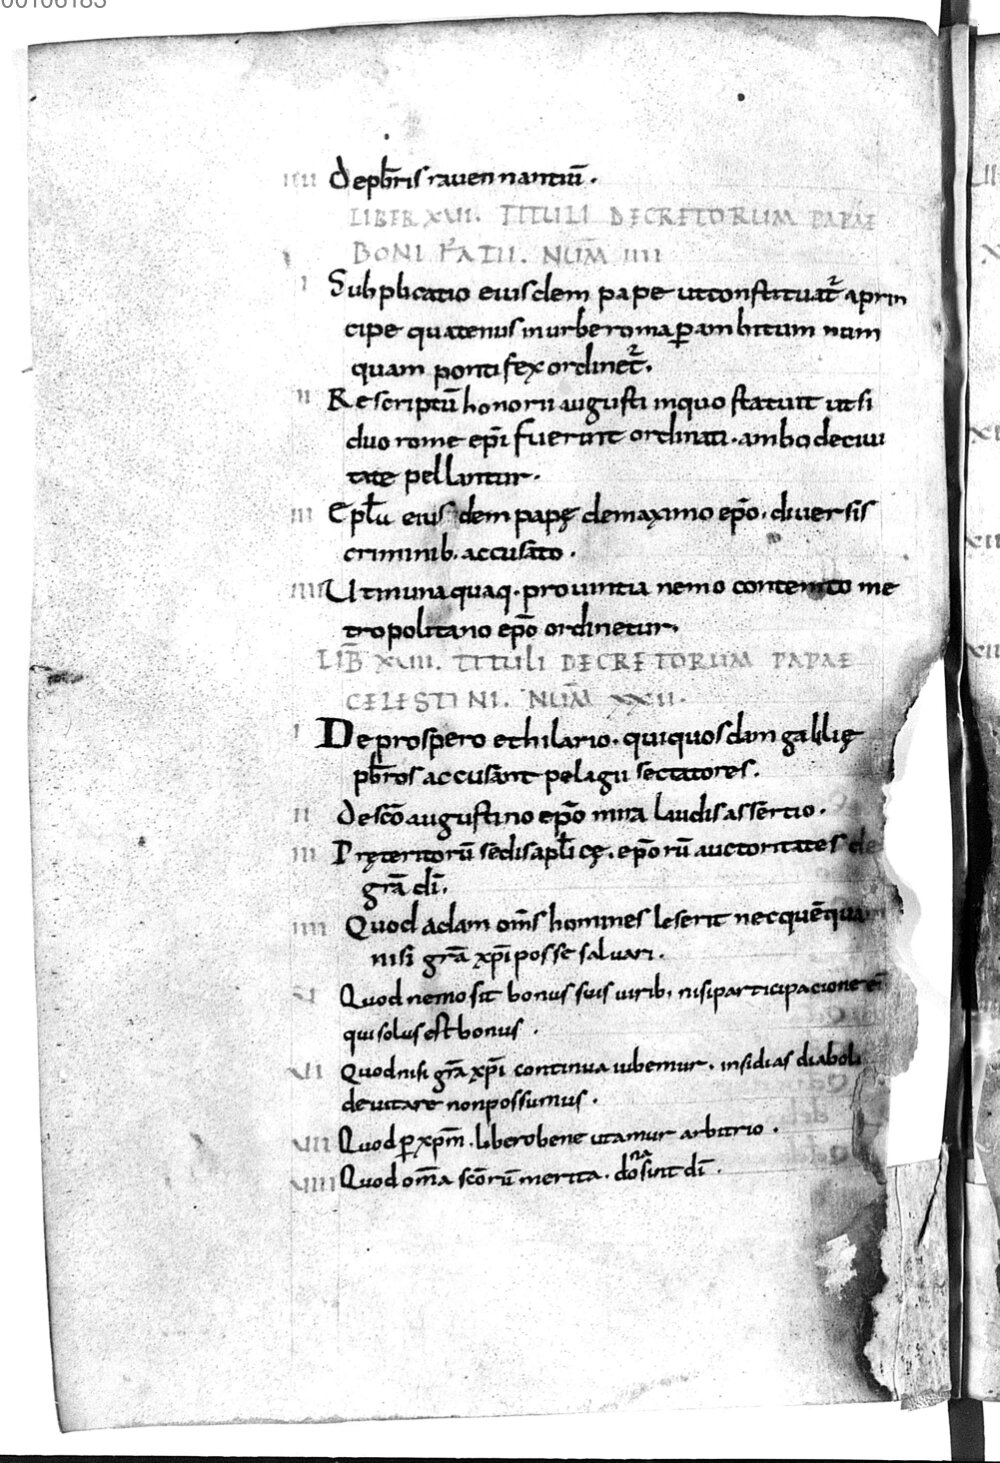 00106183
IIII De pbr̄is rauennantiū.
LIBER XVII. TITULI DECRETORUM PAPAE
BONIFATII. NUM̄ IIII
I Subplicatio eiusdem pape ut constituat᷑ a prin
cipe quatenus in urbe roma ꝑ ambitum num
quam pontifex ordinet᷑.
II Rescriptū honorii augusti in quo statuit ut si
duo rome ep̄i fuerint ordinati. ambo de ciui
tate pellantur.
III Epłu eiusdem papę de maximo ep̄o. diuersis
criminib. accusato.
IIII Ut in una quaq. prouintia nemo contemto me
tropolitano ep̄o ordinetur.
LIB̄ XVIII. TITULI DECRETORUM PAPAE
CELESTINI. NUM̄ XXII.
I De prospero et hilario. qui quosdam gallię
pbr̄os accusant pelagii sectatores.
II de sc̄o augustino ep̄o mira laudis assertio.
III Pręteritorū sedis apłicę. ep̄orū auctoritates de
grā dī.
IIII Quod adam om̄s homines leserit nec quēquam
nisi grā xp̄i posse saluari.
VI Quod nemo sit bonus suis uirib. nisi participacione ei
qui solus est bonus.
VII Quod nisi grā xp̄i continua iubemur. insidias diaboli
deuitare non possumus.
VIII Quod ꝑ xp̄m. libero bene utamur arbitrio.
VIIII Quod om̄a sc̄orū merita. dona sint dī.